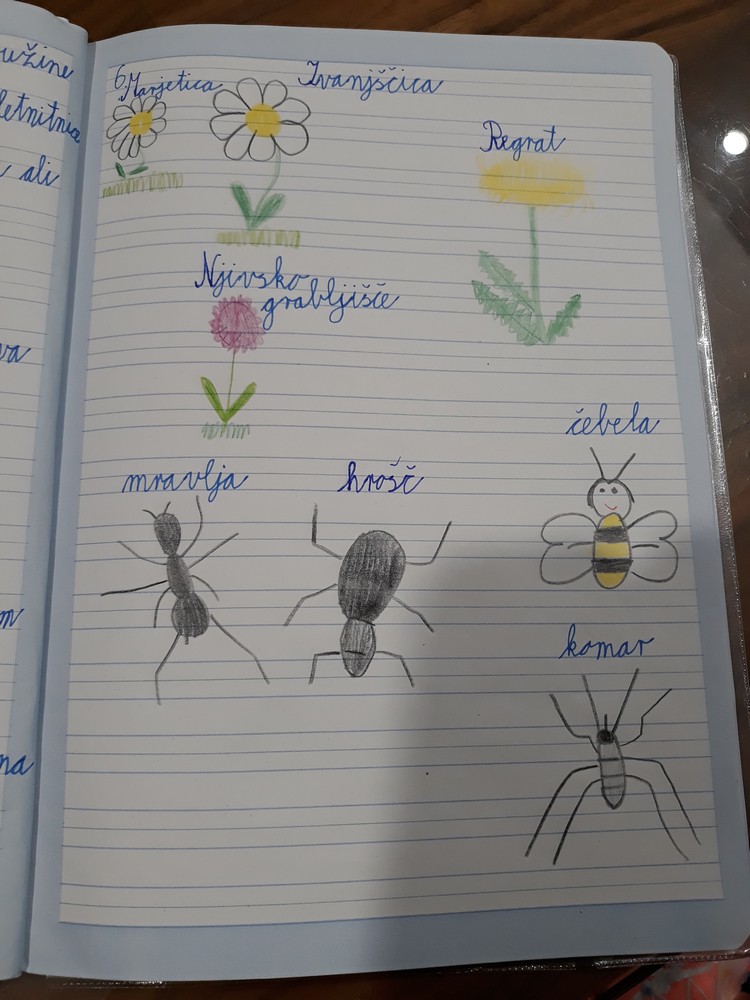 užine
letnitnica
ali
va
m
na
6. Marjetica
Ivanjščica
Regrat
Njivsko
grabljišče
čebela
mravlja
hrošč
komar